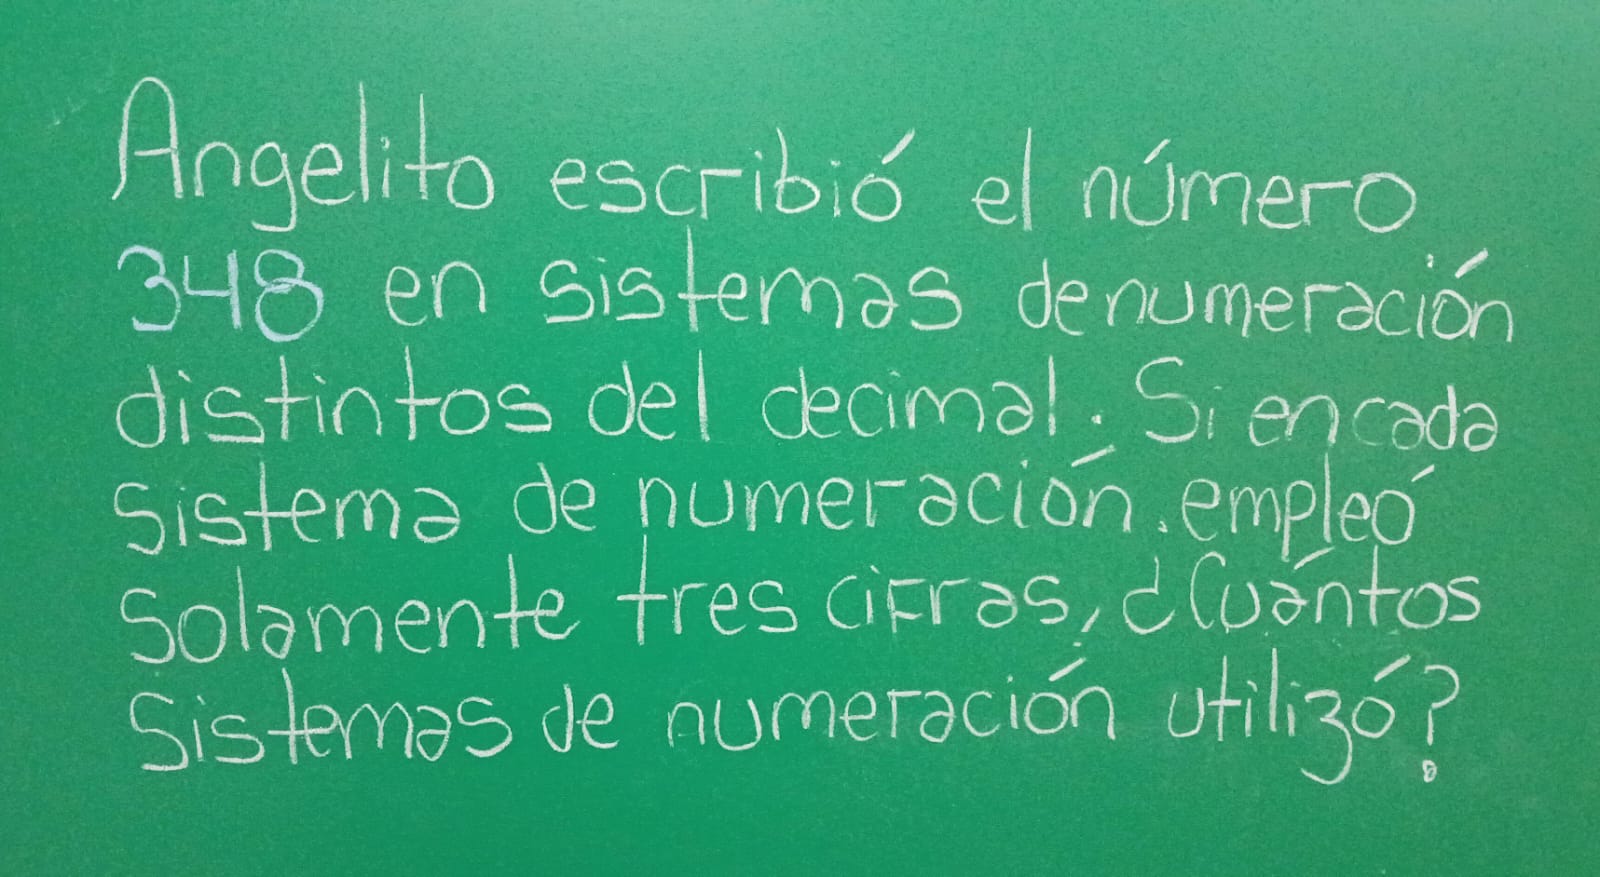 Angelito escribió el número
348 en sistemas de numeración
distintos del decimal. Si en cada
sistema de numeración. empleó
solamente tres cifras, ¿Cuántos
Sistemas de numeración utilizó?